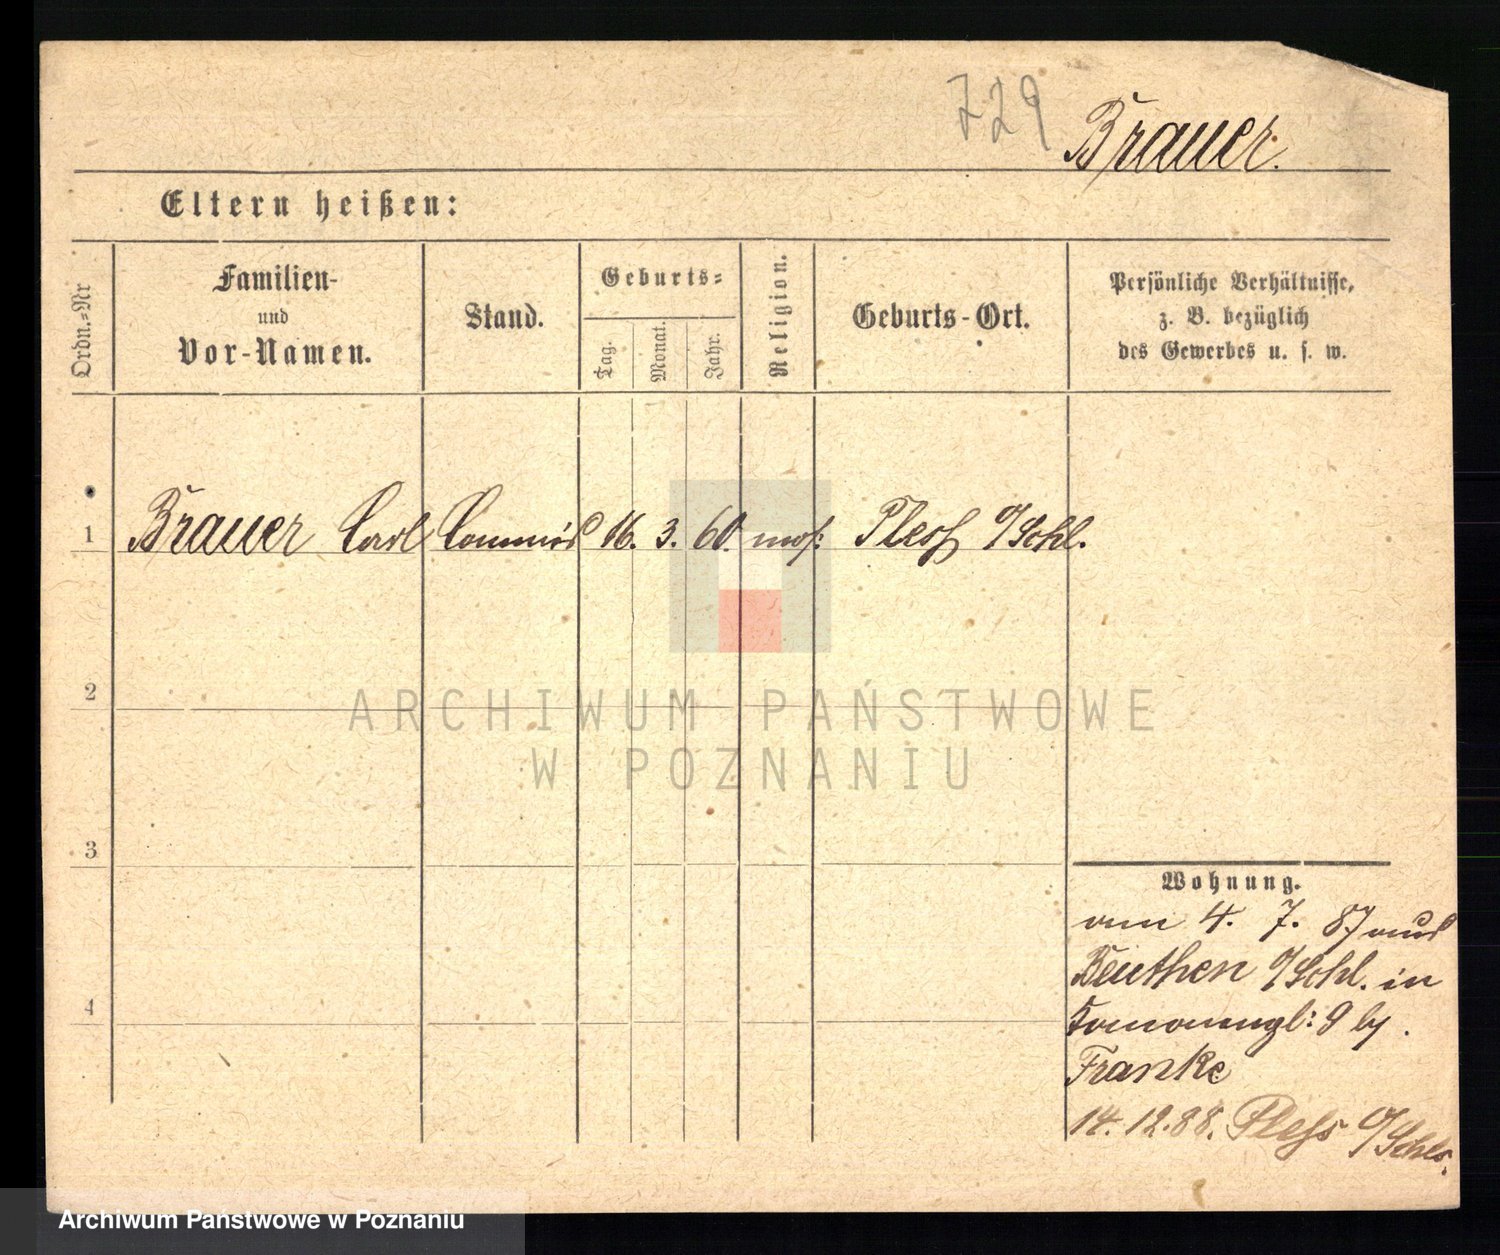 729
Brauer.
Eltern heißen:
Ordn.=Nr
Familien-
und
Vor-Namen.
Stand.
Geburts=
Tag.
Monat.
Jahr.
Religion.
Geburts-Ort.
Persönliche Verhältnisse,
z. B. bezüglich
des Gewerbes u. s. w.
1 Brauer Carl Commis 16. 3. 60. mos: Pless O/Schl.
2
3
4
Wohnung.
am 4. 7. 87 aus
Beuthen O/Schl. in
9 by
Franke
14. 12. 88. Pless O/Schls.
ARCHIWUM PAŃSTWOWE
W POZNANIU
Archiwum Państwowe w Poznaniu